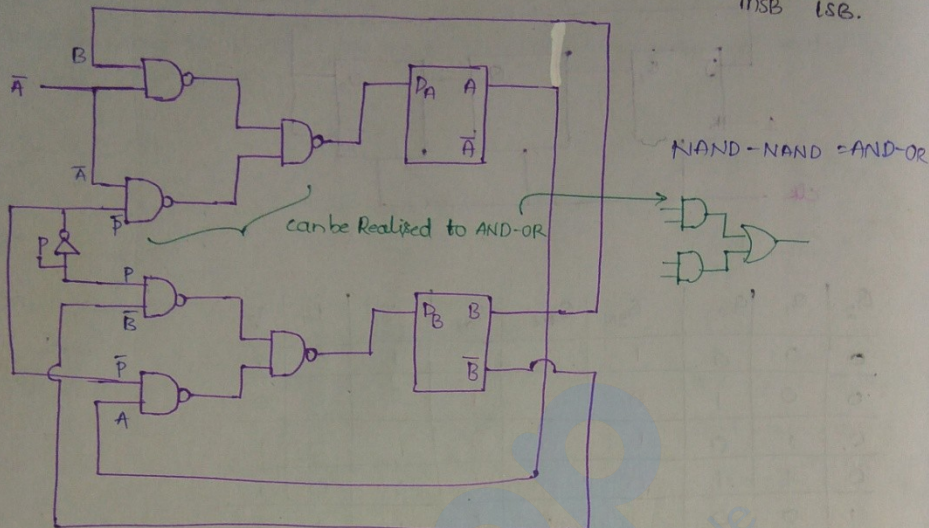 MSB LSB.
B
A̅
D_A A
A̅
NAND-NAND = AND-OR
A̅
P̅
can be Realised to AND-OR
P
P
B̅
D_B B
B̅
P̅
A